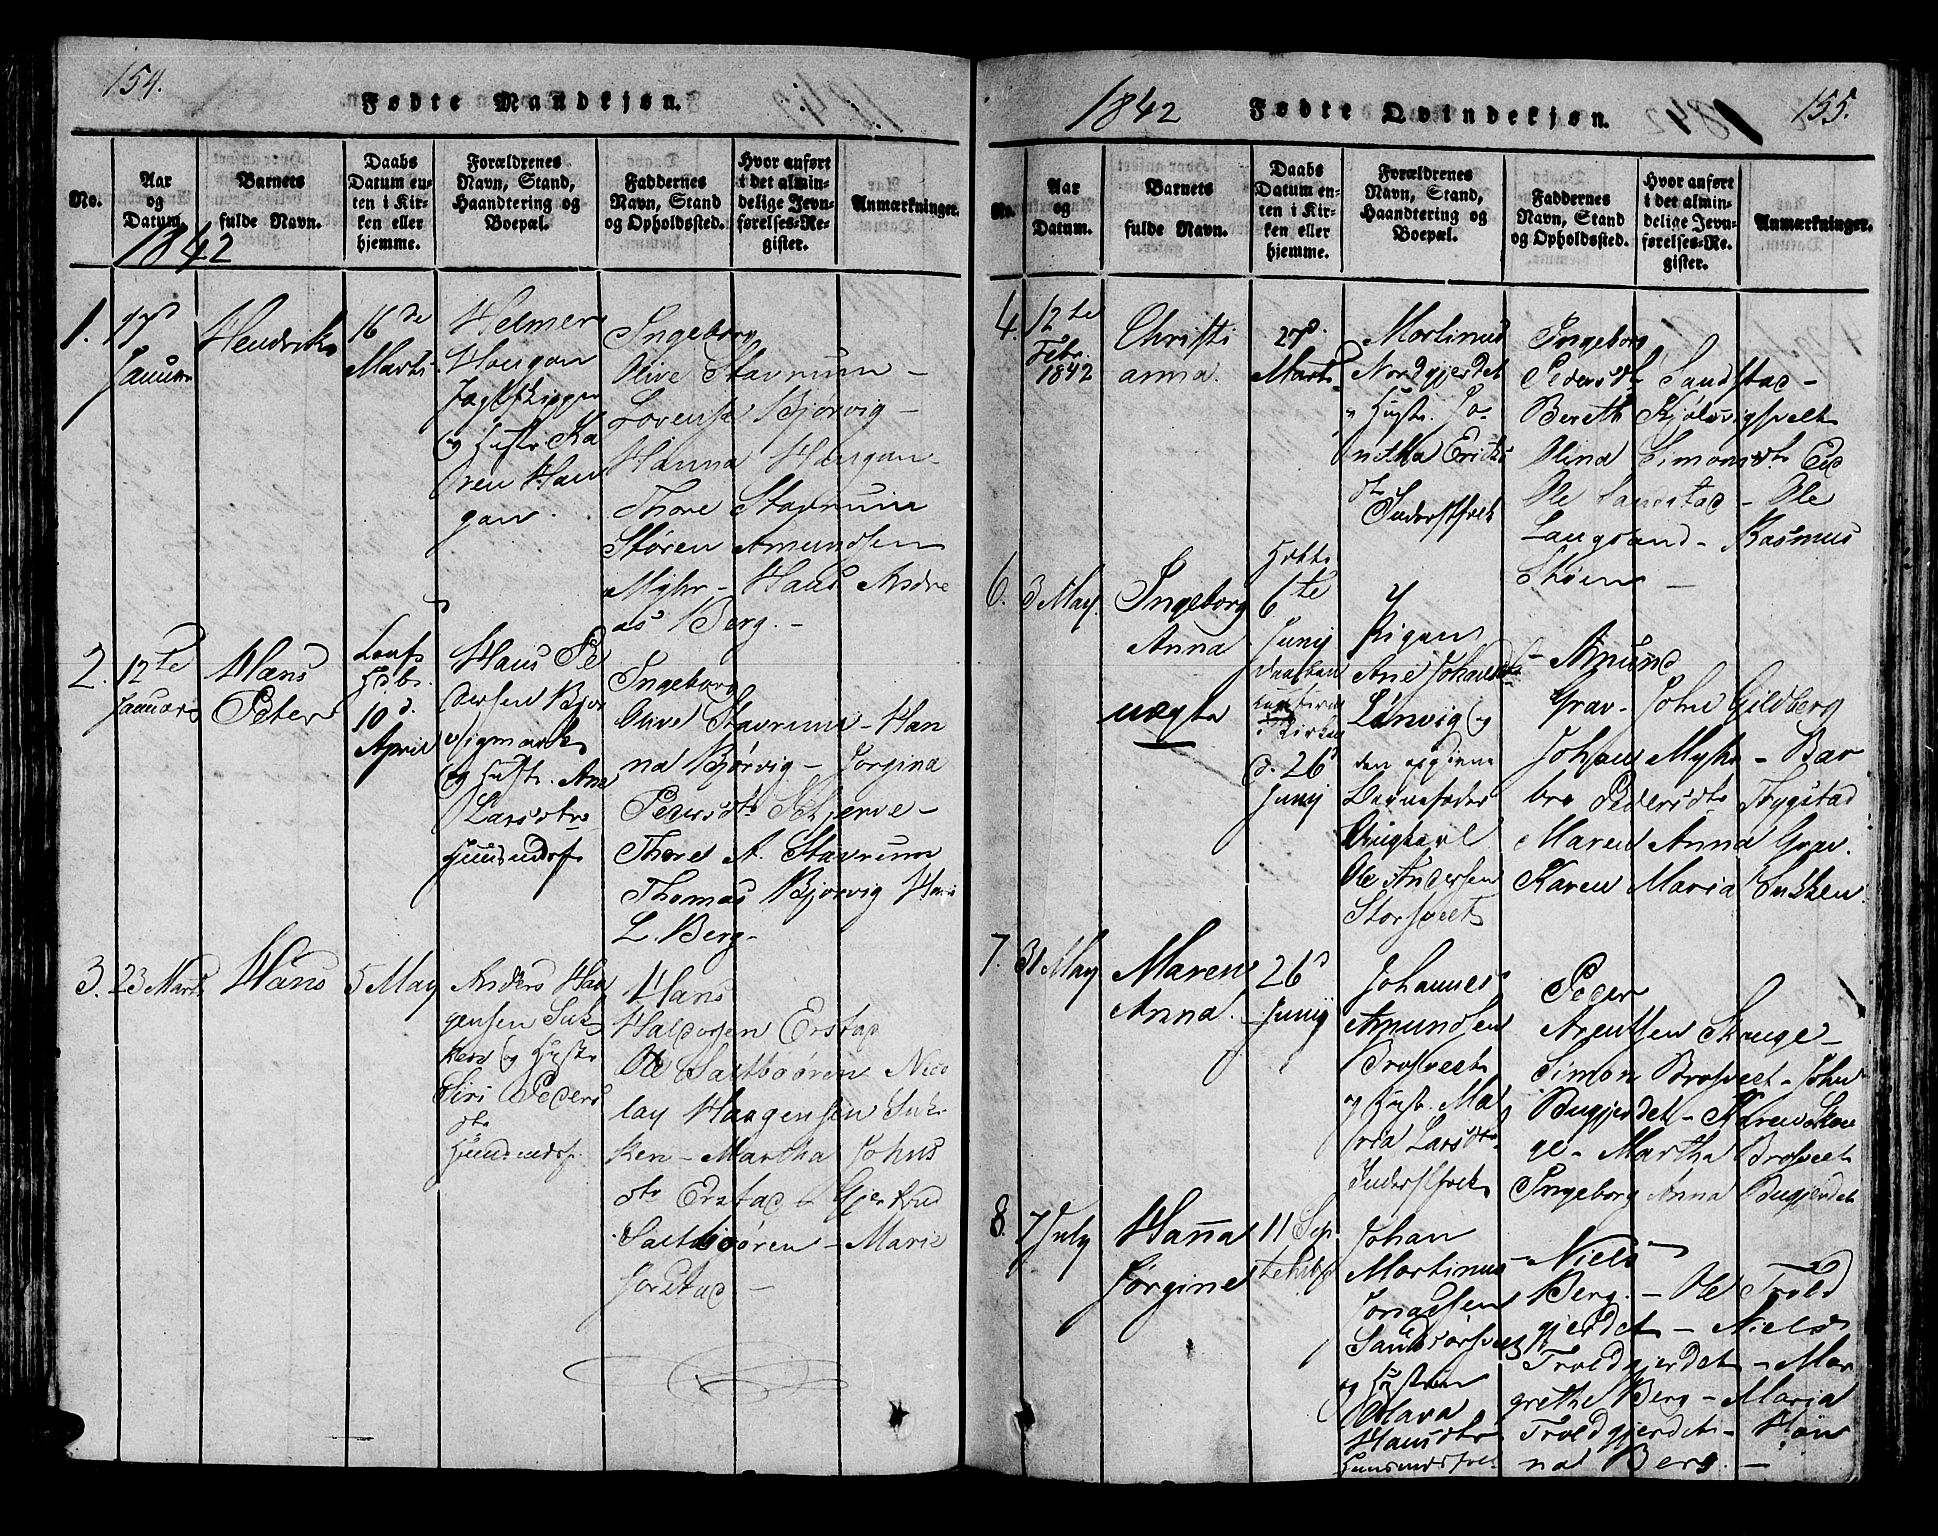 154.
Fødte Mandkjøn.
No.
Aar
og
Datum.
1842
Barnets
fulde Navn.
Daabs
Datum en-
ten i Kir-
ken eller
hjemme.
Forældrenes
Navn, Stand,
Haandtering og
Boepæl.
Faddernes
Navn, Stand
og Opholdssted.
Hvor anført
i det almin-
delige Jevn-
førelses-Re-
gister.
Anmærkninger.
1.
Januar
Hendrik
16de
Marts
Helmer
Haugan
og Hustr Ka
ren Hau
gan.
Ingeborg
Olive Stavrum -
Lorense Bjørvig -
Hanna Haugan -
Thore Stavrum
Støren Amundsen
Myhr - Hans Andre
as Berg. -
2.
12te
Januar
Hans
Peter
10 d.
April
Hans Pe
dersen Bjør
vigmark
og Hustr. Ane
Larsdtr
Ingeborg
Olive Stavrum - Han
na Bjørvig - Jorgina
Pedersdtr Schjerve -
Thore A. Stavrum
Thomas Bjørvig Hans
L. Berg -
3.
23 Marts
Hans
5 May
Anders Haa
gensen Suk
ken og Hustr
Siri Peders
dtr
Hans
Haldorsen Erstad
Ole Saltbøøren Nico
lay Haagensen Suk
ken - Martha Johns
dtr Erstad - Gjertrud
Saltbøøren - Marie
Jorstad -
1842
Fødte Qvindekjøn.
155.
No.
Aar
og
Datum.
Barnets
fulde Navn.
Daabs
Datum en-
ten i Kir-
ken eller
hjemme.
Forældrenes
Navn, Stand,
Haandtering og
Boepæl.
Faddernes
Navn, Stand
og Opholdssted.
Hvor anført
i det almin-
delige Jevn-
førelses-Re-
gister.
Anmærkninger.
4.
12te
Febr.
1842
Christi
anna.
27d.
Marts
Mortinus
Nordgjerdet
Hustr. Jo
netha Ericks
dtr
Ingeborg
Pedersdtr Sandstad -
Bereth Kjølsvigsvelt
Olina Simonsdtr Eid
Ole Sandstad - Ole
Langsand - Rasmus
Støen -
6.
3 May.
Ingeborg
Anna
uægte
6te
Junij
i Kirken
d. 26
Junij
Pigen
Ane Johansdtr
Lenvig og
den opgivne
Barnefader
Ungkarl
Ole Andersen
Storsveet
Amund
Grav - John Gildberg
Johan Myhr - Bar
bro Pedersdtr Trygstad
Maren Anna Grav.
Karen Maria Sukken.
7.
31 May
Maren
Anna.
26d
Junij
Johannes
Amundsen
Brosveet
og Hustr. Ma
ria Larsdtr
Peder
Arentsen Skauge -
Simon Brosveet - John
Bugjerdet - Karen Skau
ge - Martha Brosveet
Ingeborg Anna Bugjerdet
8.
7 July
Hanna
Jørgine
11 Sep
tember
Johan
Martinus
Jonassen
og Hustru
Olava
Hansdtr
Niels
Berg. - Ole Trold
gjerdet - Niels
Troldgjerdet - Mar
grethe Berg - Maria
Troldgjerdet - Han
na Berg. -